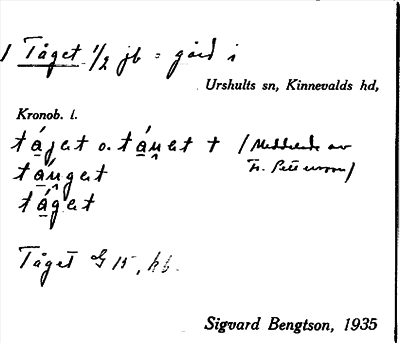 1 Tåget 1/2 jb = gård i
Urshults sn, Kinnevalds hd,
Kronob. l.
tájet o. tánet + (Meddelade av
tánget Fr. Pettersson)
táget
Tåget G 15, kb.
Sigvard Bengtson, 1935